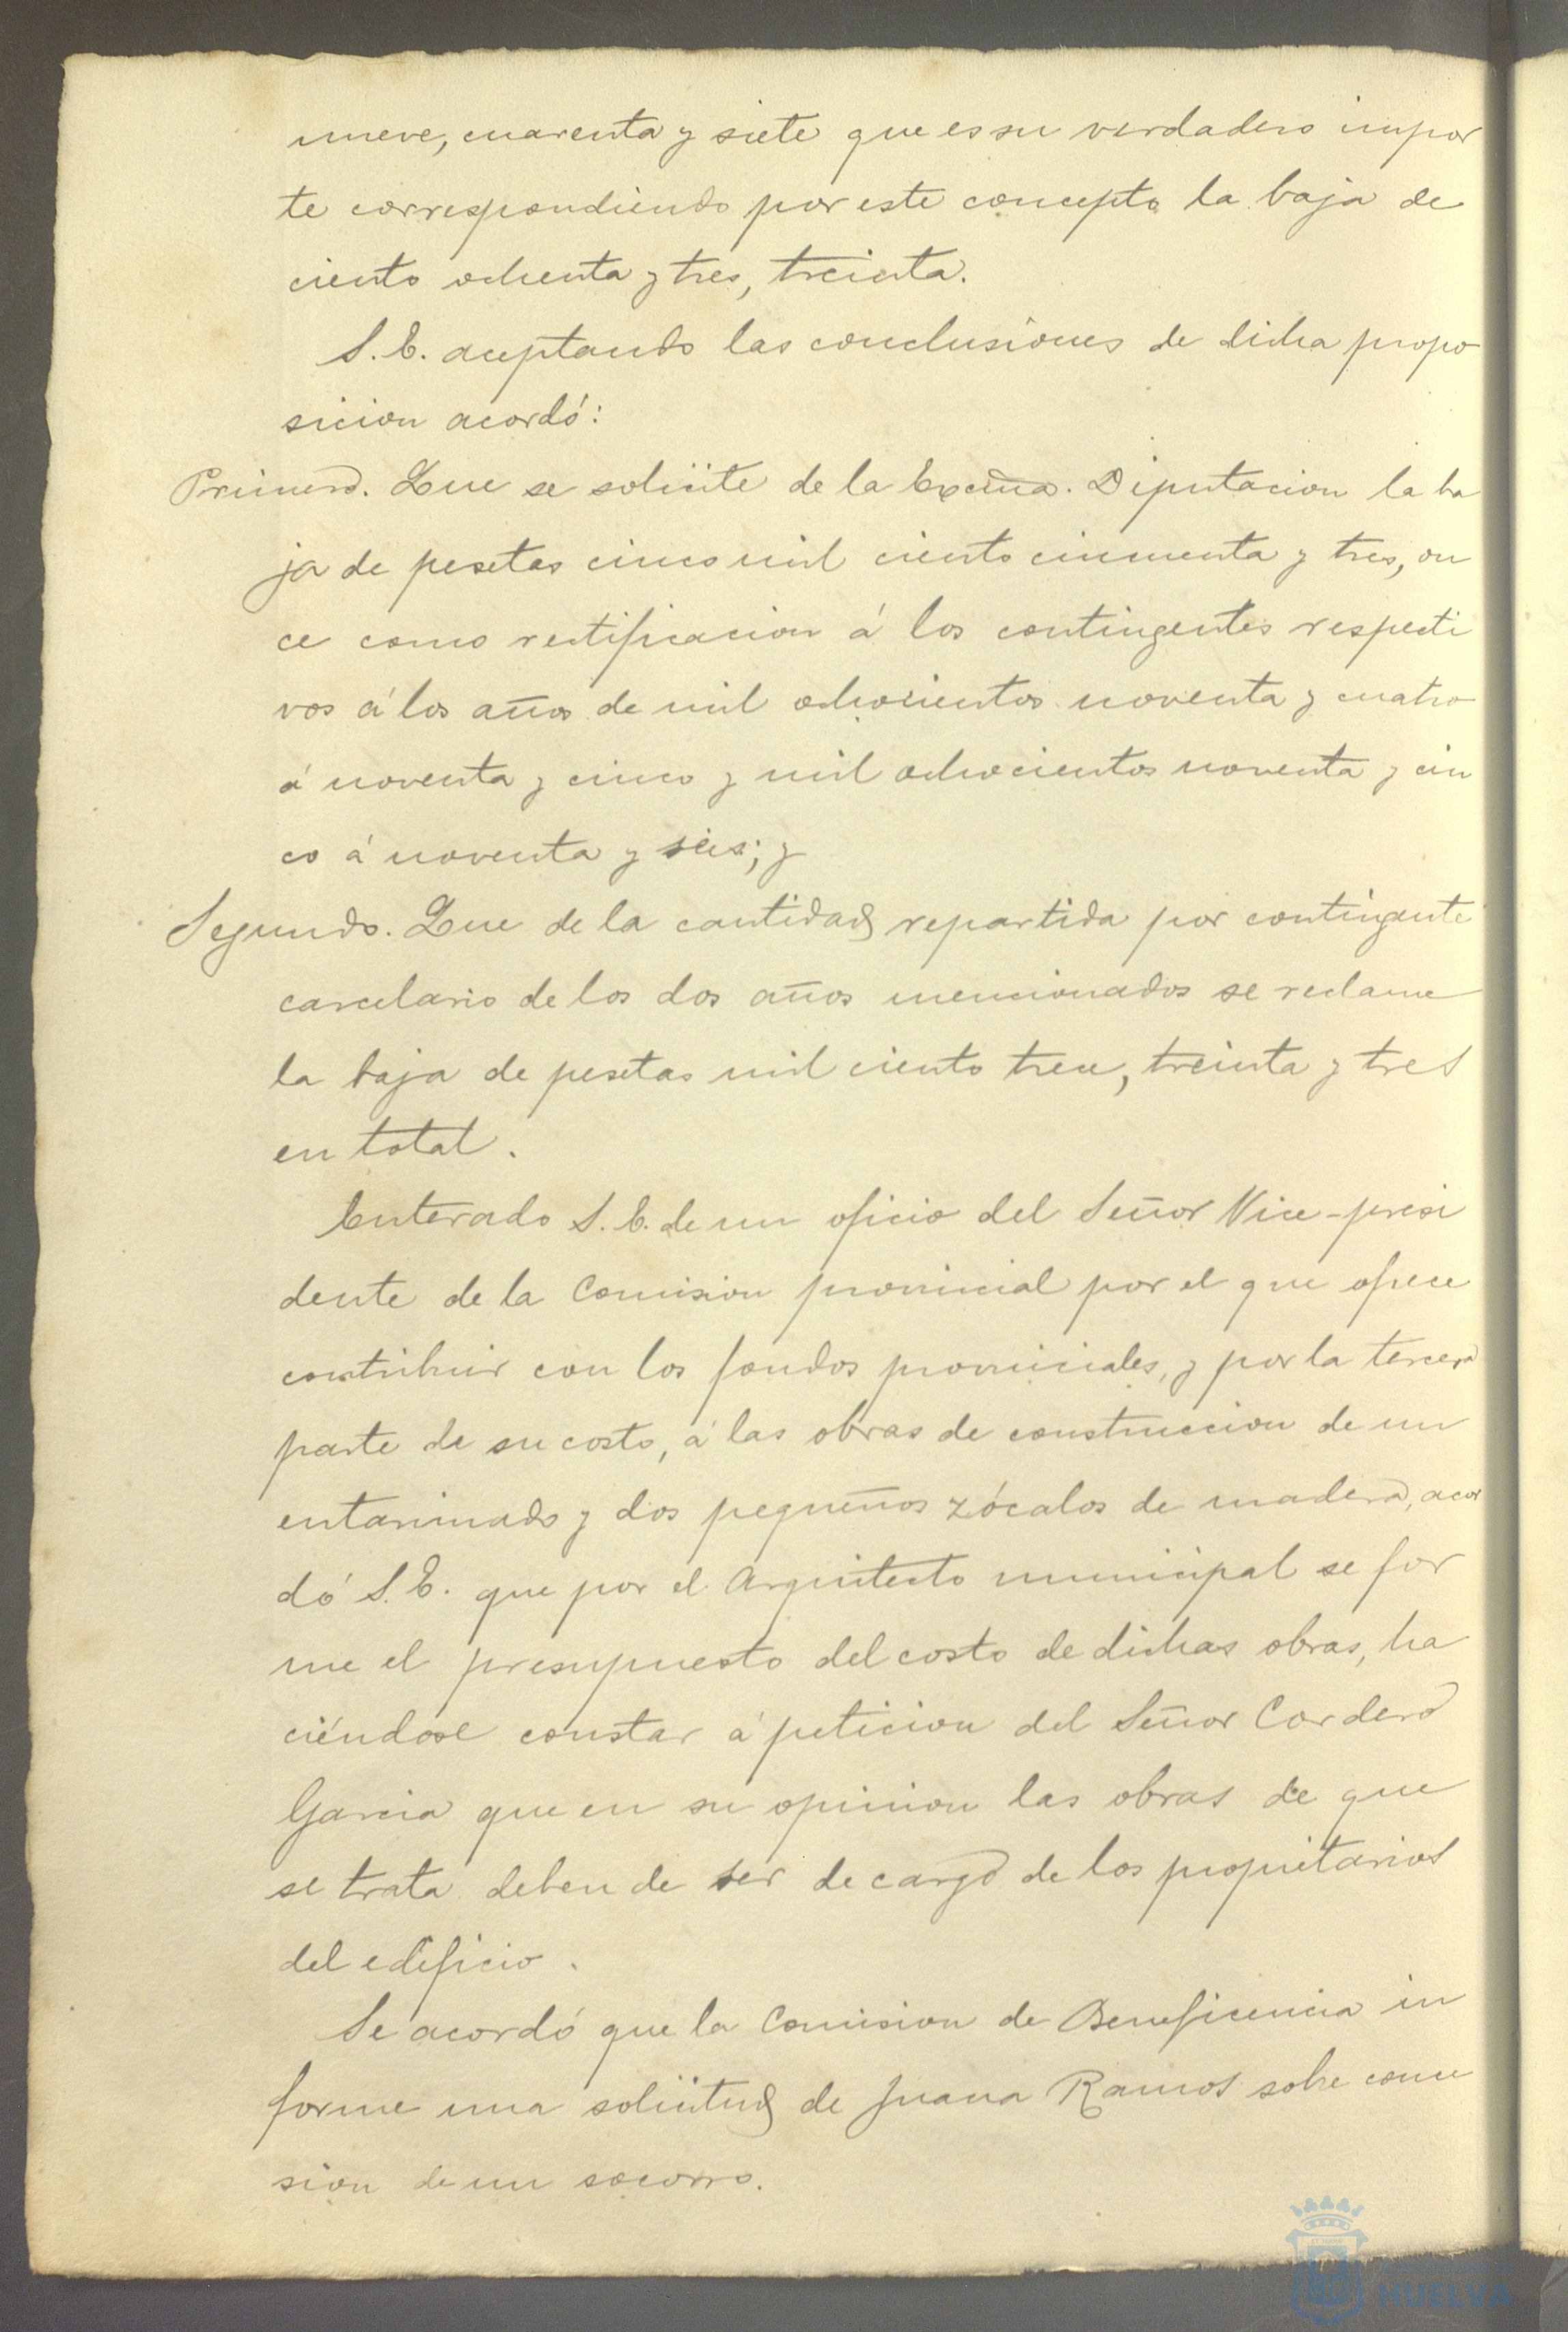 nueve, cuarenta y siete que es su verdadero impor
te correspondiendo por este concepto la baja de
ciento ochenta y tres, treinta.
S. E. aceptando las conclusiones de dicha propo
sicion acordó:
Primero. Que se solicite de la Excma. Diputacion la ba
ja de pesetas cinco mil ciento cincuenta y tres, on
ce como rectificacion á los contingentes respecti
vos á los años de mil ochocientos noventa y cuatro
á noventa y cinco y mil ochocientos noventa y cin
co á noventa y seis; y
Segundo. Que de la cantidad repartida por contingente
carcelario de los dos años mencionados se reclame
la baja de pesetas mil ciento trece, treinta y tres
en total.
Enterado S. E. de un oficio del Señor Vice-presi
dente de la Comision provincial por el que ofrece
contribuir con los fondos provinciales, y por la tercera
parte de su costo, á las obras de construccion de un
entarimado y dos pequeños zócalos de madera, acor
dó S. E. que por el Arquitecto municipal se for
me el presupuesto del costo de dichas obras, ha
ciéndose constar á peticion del Señor Cordero
Garcia que en su opinion las obras de que
se trata deben de ser de cargo de los propietarios
del edificio.
Se acordó que la Comision de Beneficencia in
forme una solicitud de Juana Ramos sobre conce
sion de un socorro.
HUELVA